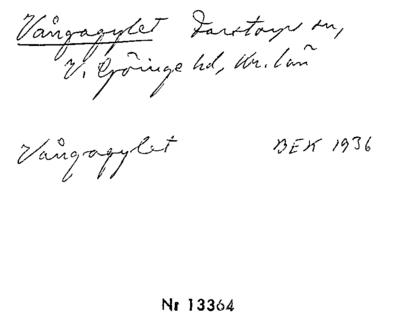 Vångagylet Farstorps sn,
V. Göinge hd, Kr. län
Vångagylet BEK 1936
Nr 13364